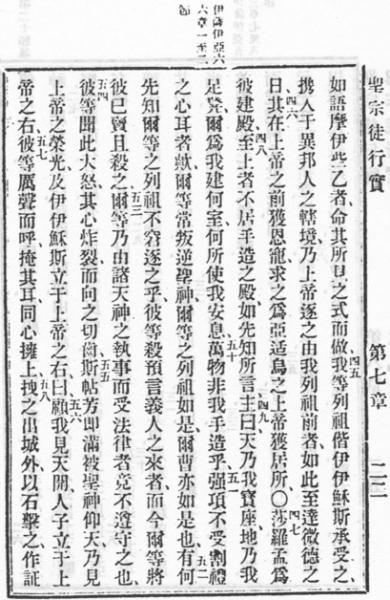 聖宗徒行實 第七章 二二
如語摩伊些乙者命其所旦之式而做四五我等列祖偕伊伊穌斯承受之
携人于異邦人之轄境乃上帝逐之由我列祖前者如此至達微德之
日四六其在上帝之前獲恩寵求之爲亞适烏之上帝獲居所〇四七莎羅孟爲
彼建殿四八至上者不居手造之殿如先知所言四九主曰天乃我寶座地乃我
足凳爾爲我建何室何所使我安息五十萬物非我手造乎五一强項不受割禮
之心耳者歟爾等常叛逆聖神爾等之列祖如是爾曹亦如是也五二有何
先知爾等之列祖不窘逐之乎彼等殺預言義人之來者而今爾等將
彼已賣且殺之五三爾等乃由諸天神之執事而受法律者竟不遵守之也
五四彼等聞此大怒其心炸裂而向之切齒五五斯帖芳即滿被聖神仰天乃見
上帝之榮光及伊伊穌斯立于上帝之右五六曰顧我見天開人子立于上
帝之右五七彼等厲聲而呼掩其耳同心擁上五八拽之出城外以石擊之作証
伊薩伊亞六
六章一至二
節